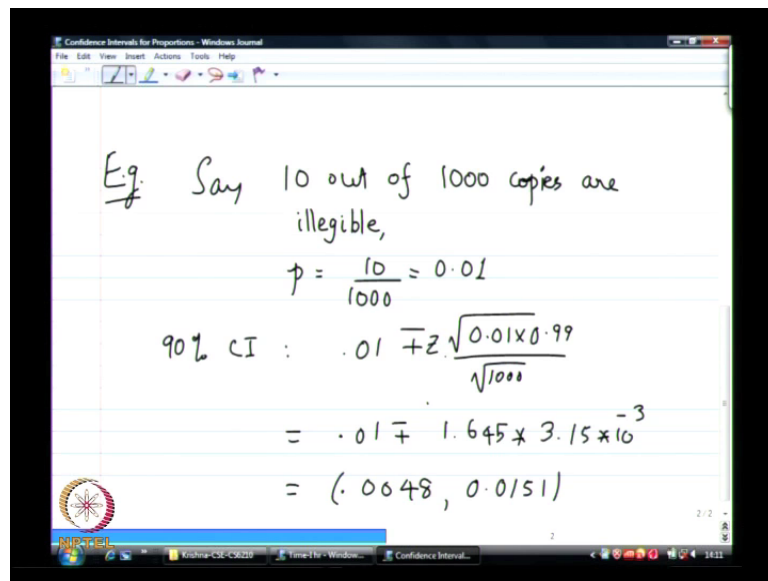 Confidence Intervals for Proportions - Windows Journal
File Edit View Insert Actions Tools Help
E.g. Say 10 out of 1000 copies are
illegible,
p = 10/1000 = 0.01
90% CI : .01 ∓ z √(0.01×0.99)/√1000
= .01 ∓ 1.645 * 3.15 * 10^-3
= (.0048, 0.0151)
2 / 2
2
NPTEL
Krishna-CSE-CS6210 Time-1hr - Window... Confidence Interval... 14:11